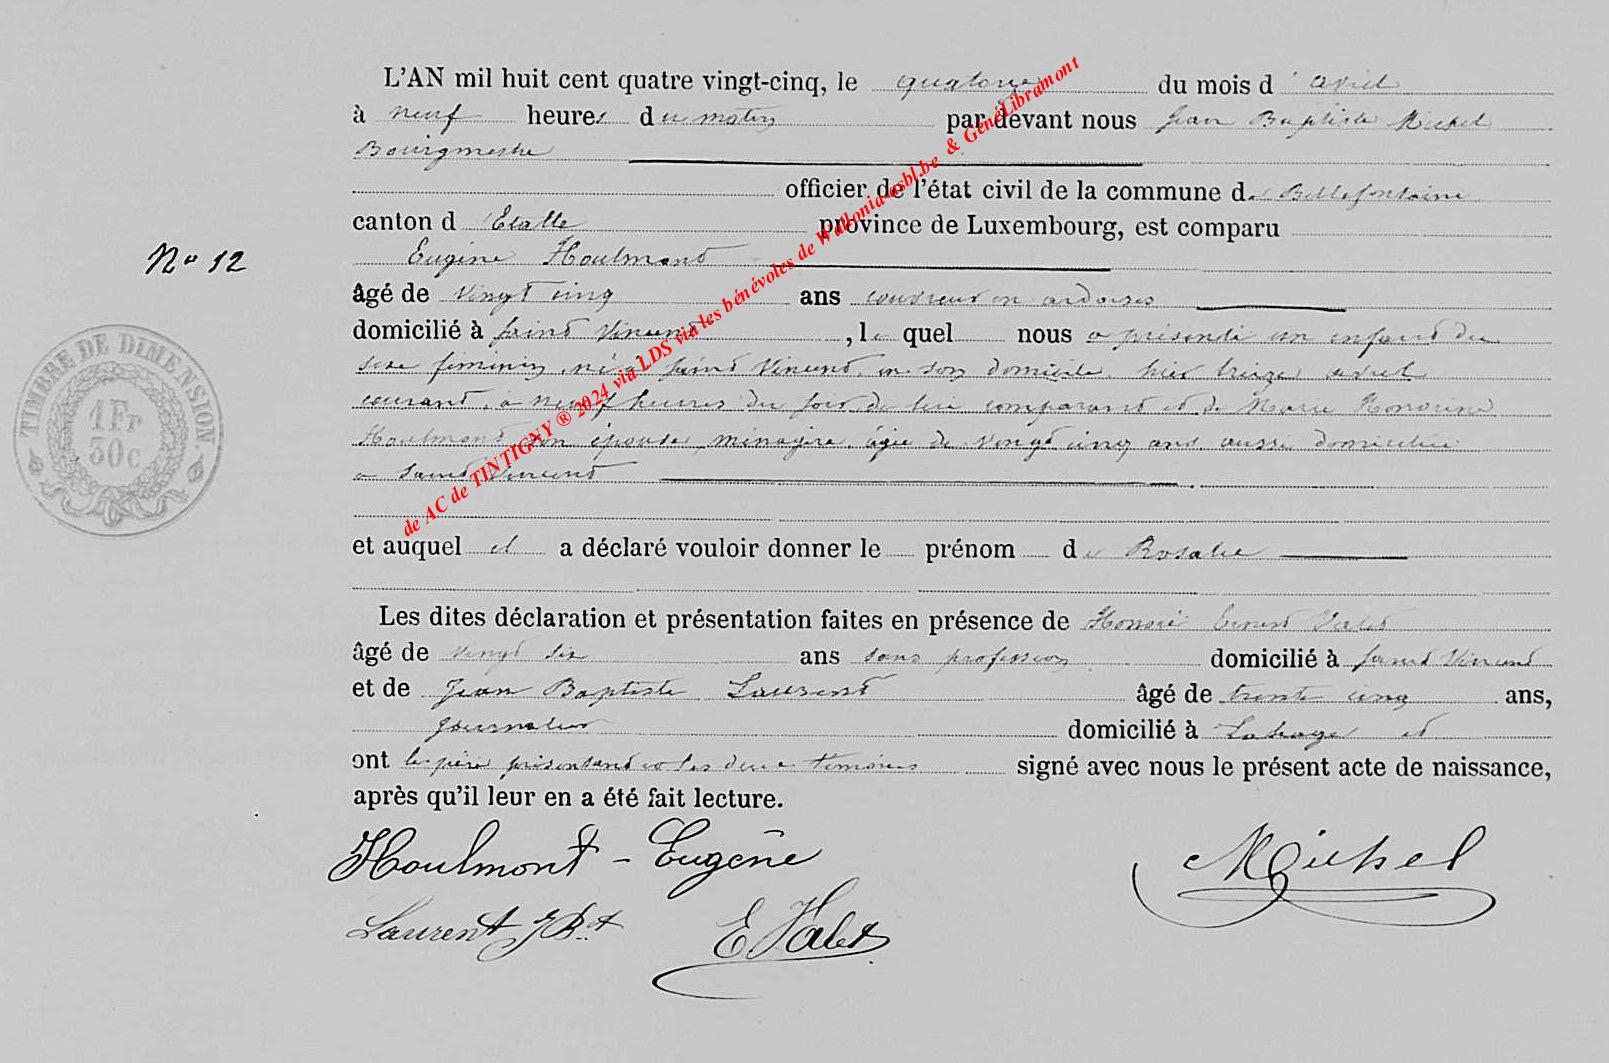 L'AN mil huit cent quatre vingt-cinq, le quatorze du mois d'avril
à neuf heures du matin par devant nous Jean Baptiste Michel
Bourgmestre
officier de l'état civil de la commune de Bellefontaine
canton d'Etalle province de Luxembourg, est comparu
Nº 12
Eugène Houlmont
âgé de vingt cinq ans couvreur en ardoises
domicilié à Saint Vincent, lequel nous a présenté un enfant du
sexe féminin, né à Saint Vincent, en son domicile, hier treize avril
courant, à neuf heures du soir de lui comparant et de Marie Honorine
Houlmont son épouse, ménagère, âgée de vingt cinq ans aussi domiciliée
à Saint Vincent
et auquel il a déclaré vouloir donner le prénom de Rosalie
Les dites déclaration et présentation faites en présence de Honoré Ernest
âgé de vingt six ans sans profession domicilié à Saint Vincent
et de Jean Baptiste Laurent âgé de trente cinq ans,
journalier domicilié à Lahage et
ont le père présentant et les deux témoins signé avec nous le présent acte de naissance,
après qu'il leur en a été fait lecture.
Houlmont - Eugène
Michel
Laurent J Bt
E
TIMBRE DE DIMENSION
1 Fr
30c
de AC de TINTIGNY ® 2024 via LDS via les bénévoles de Wallonia-asbl.be & GénéLibramont